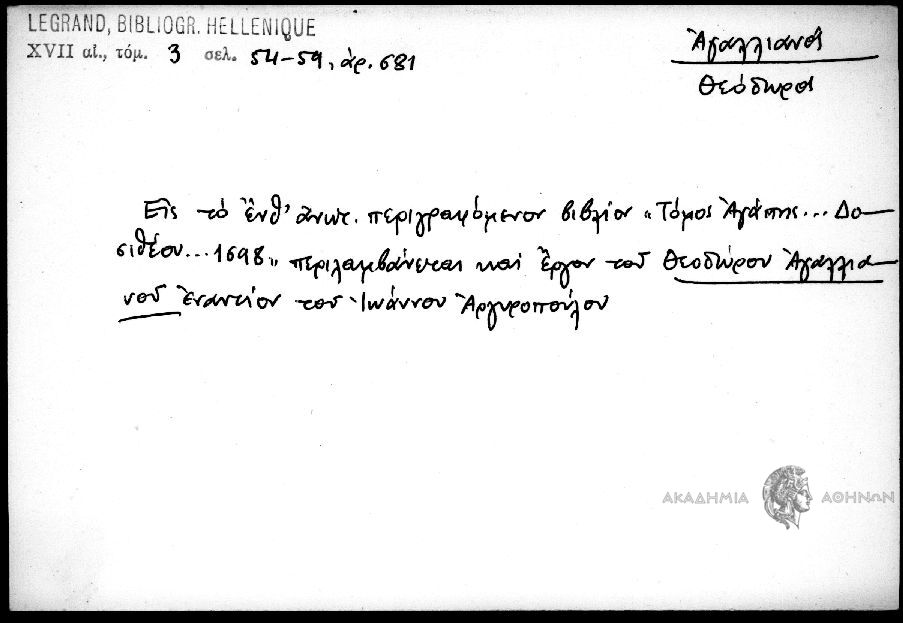 LEGRAND, BIBLIOGR. HELLENIQUE
XVII αἰ., τόμ. 3 σελ. 54-59, ἀρ. 681
Ἀγαλλιανός
Θεόδωρος
Εἰς τὸ ἔνθ' ἄνωτ. περιγραφόμενον βιβλίον "Τόμος Ἀγάπης... Δο-
σιθέου... 1698" περιλαμβάνεται καὶ ἔργον τοῦ Θεοδώρου Ἀγαλλια-
νοῦ ἐναντίον τοῦ Ἰωάννου Ἀργυροπούλου
ΑΚΑΔΗΜΙΑ ΑΘΗΝΩΝ